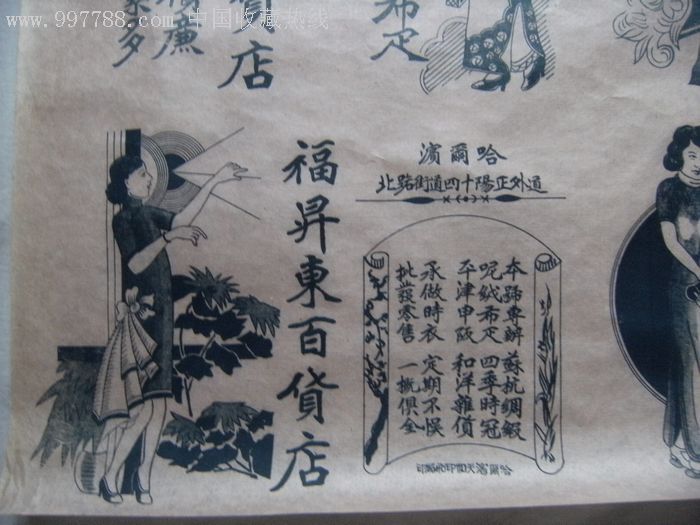 www.997788.com 中国收藏热线
布疋
貨店
廉
多
哈爾濱
道外正陽十四道街路北
本號專辦 蘇杭綢緞
呢絨布疋 四季時冠
平津申阪 和洋雜貨
承做時衣 定期不悮
批發零售 一概俱全
福昇東百貨店
哈爾濱